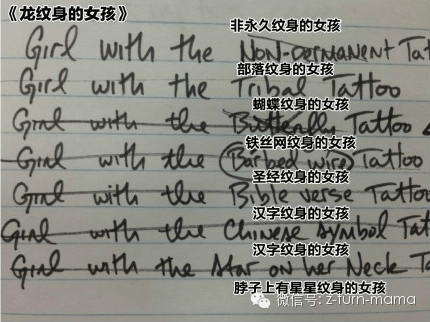 《龙纹身的女孩》
非永久纹身的女孩
Girl with the Non-permanent Tat
部落纹身的女孩
Girl with the Tribal Tattoo
蝴蝶纹身的女孩
Girl with the Butterfly Tattoo
铁丝网纹身的女孩
Girl with the Barbed wire Tattoo
圣经纹身的女孩
Girl with the Bible verse Tattoo
汉字纹身的女孩
Girl with the Chinese symbol Tat
汉字纹身的女孩
Girl with the star on her Neck Ta
脖子上有星星纹身的女孩
微信号: z-turn-mama